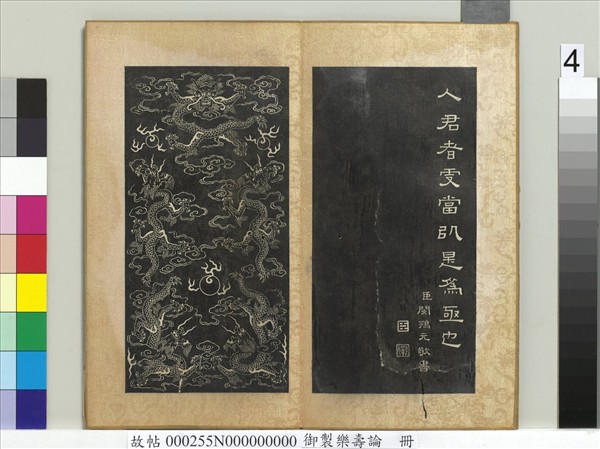 人君者更當以是為亟也
臣閔鶚元敬書
臣
4
故帖 000255N000000000 御製樂壽論 冊